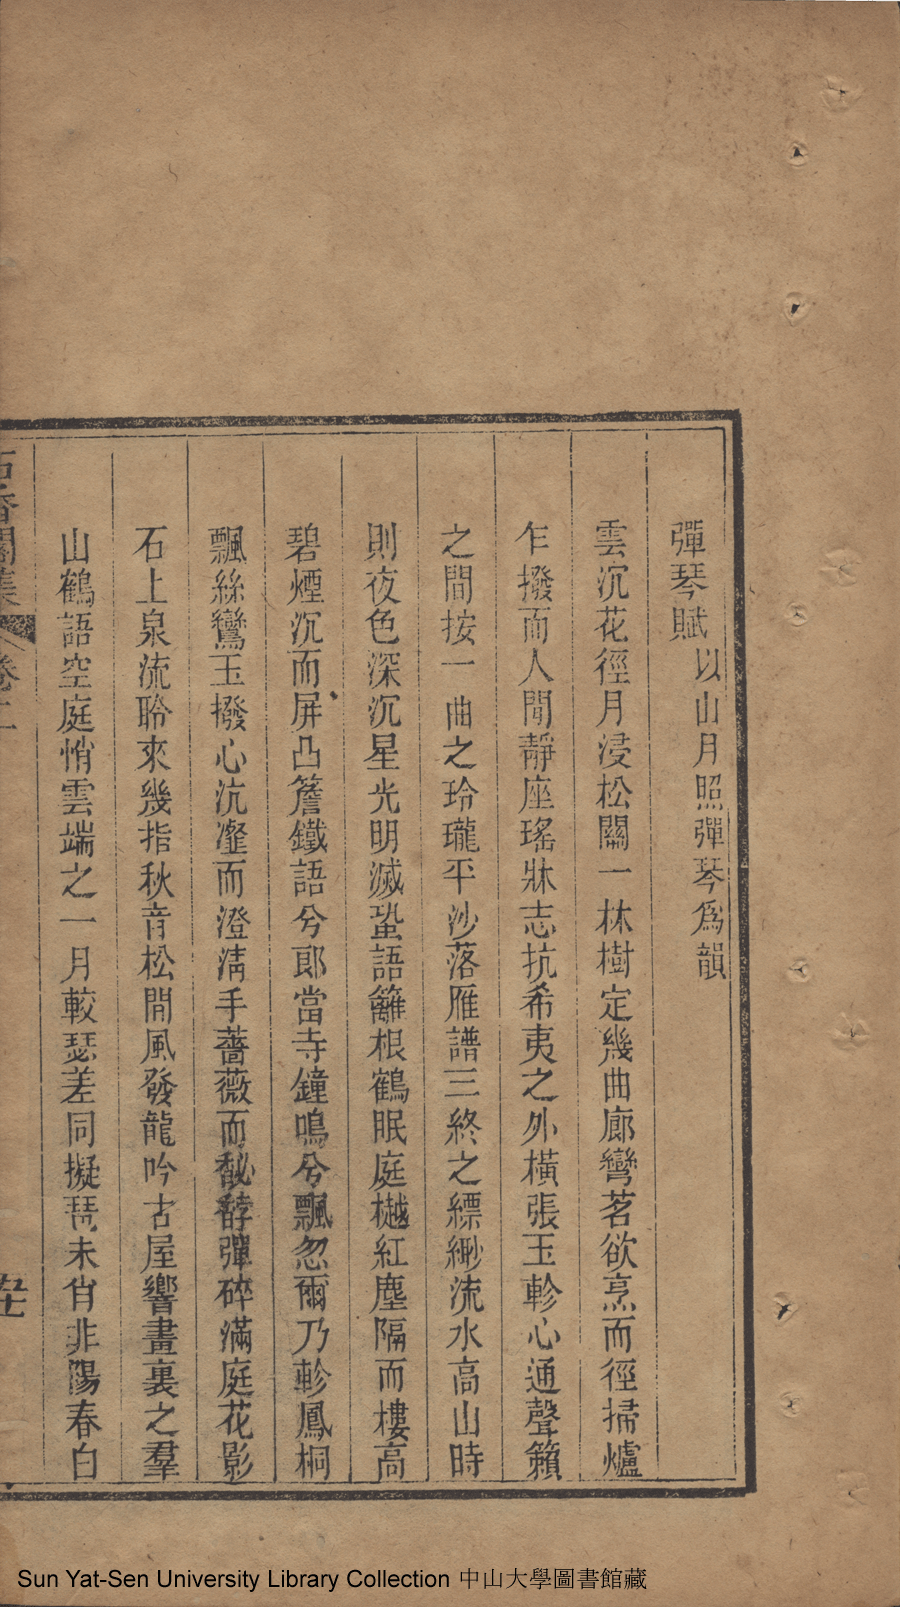 彈琴賦 以山月照彈琴爲韻
雲沉花徑月浸松關一林樹定幾曲廊彎茗欲烹而徑掃爐
乍撥而人閒靜座瑤牀志抗希夷之外橫張玉軫心通聲籟
之間按一曲之玲瓏平沙落雁譜三終之縹緲流水高山時
則夜色深沉星光明滅蛩語籬根鶴眠庭樾紅塵隔而樓高
碧煙沉而屏凸簷鐵語兮郎當寺鐘鳴兮飄忽爾乃軫鳳桐
飄絲鸞玉撥心沆瀣而澄淸手薔薇而馝馞彈碎滿庭花影
石上泉流聆來幾指秋音松閒風發龍吟古屋響畫裏之羣
山鶴語空庭悄雲端之一月較瑟差同擬琴未肖非陽春白
石香閣集 卷二
五十七
Sun Yat-Sen University Library Collection 中山大學圖書館藏